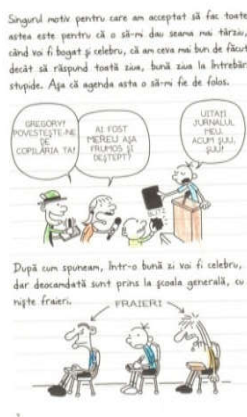 Singurul motiv pentru care am acceptat să fac toate
astea este pentru că o să-mi dau seama mai târziu,
când voi fi bogat și celebru, că am ceva mai bun de făcut
decât să răspund toată ziua, bună ziua la întrebări
stupide. Așa că agenda asta o să-mi fie de folos.
GREGORY!
POVESTEȘTE-NE
DE
COPILĂRIA TA!
AI FOST
MEREU AȘA
FRUMOS ȘI
DEȘTEPT?
UITAȚI
JURNALUL
MEU.
ACUM ȘUU,
ȘUU!
După cum spuneam, într-o bună zi voi fi celebru,
dar deocamdată sunt prins la școala generală, cu
niște fraieri.
FRAIERI